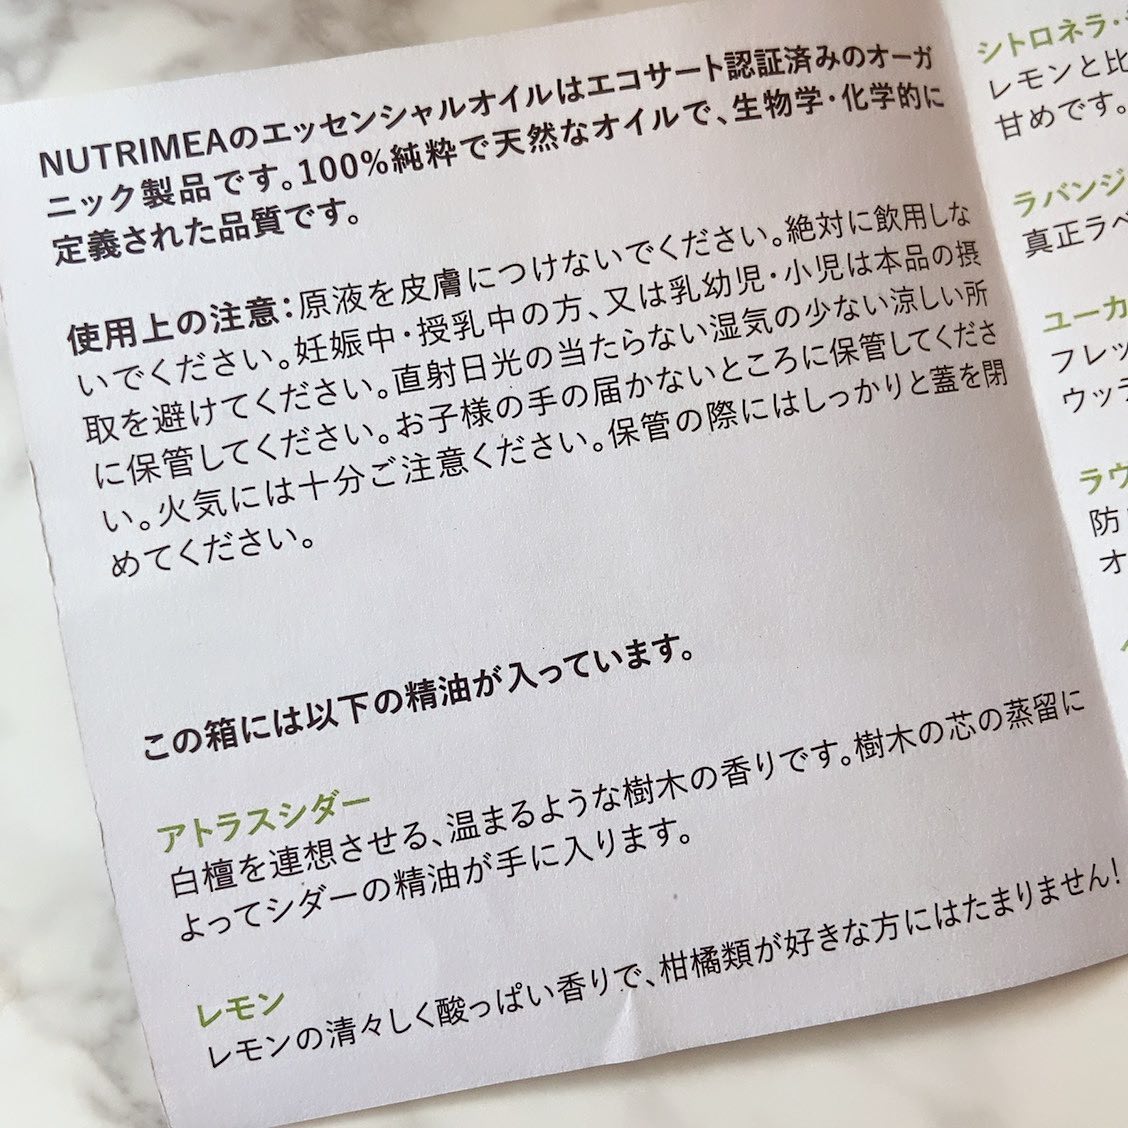 NUTRIMEAのエッセンシャルオイルはエコサート認証済みのオーガ
ニック製品です。100%純粋で天然なオイルで、生物学・化学的に
定義された品質です。
使用上の注意：原液を皮膚につけないでください。絶対に飲用しな
いでください。妊娠中・授乳中の方、又は乳幼児・小児は本品の摂
取を避けてください。直射日光の当たらない湿気の少ない涼しい所
に保管してください。お子様の手の届かないところに保管してくださ
い。火気には十分ご注意ください。保管の際にはしっかりと蓋を閉
めてください。
この箱には以下の精油が入っています。
アトラスシダー
白檀を連想させる、温まるような樹木の香りです。樹木の芯の蒸留に
よってシダーの精油が手に入ります。
レモン
レモンの清々しく酸っぱい香りで、柑橘類が好きな方にはたまりません!
シトロネラ・
レモンと比
甘めです。
ラバンジ
真正ラベ
ユーカ
フレッ
ウッデ
ラヴ
防
オ